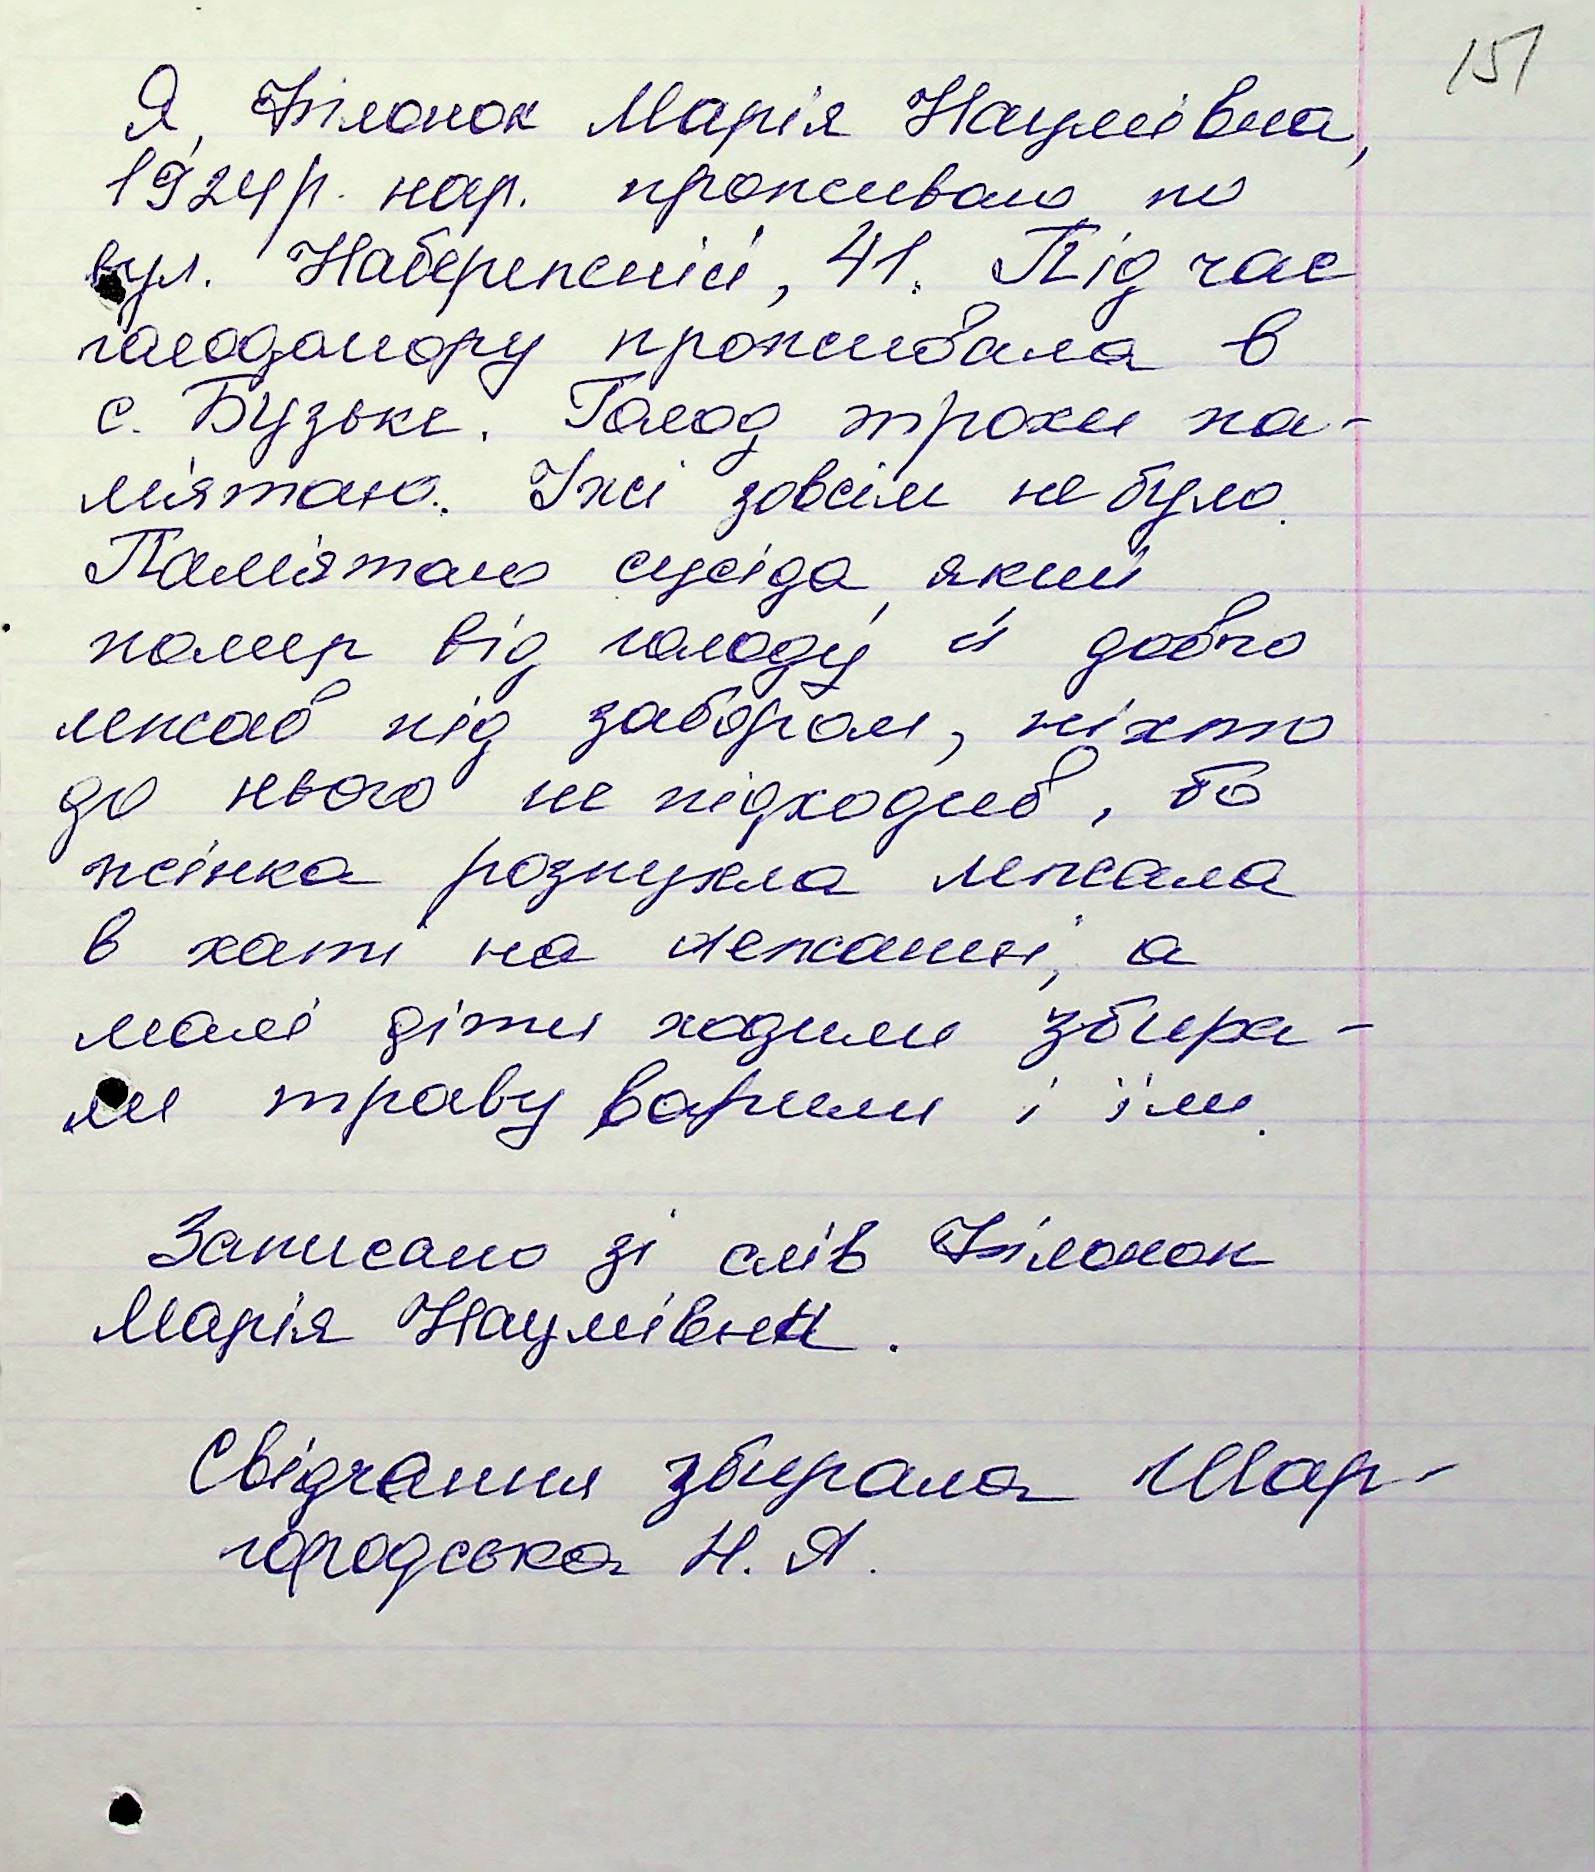 151
Я, Білонок Марія Наумівна,
1924р. нар. проживаю по
вул. Набережній, 41. Під час
голодомору проживала в
с. Бузьке. Голод трохи па-
м'ятаю. Їжі зовсім не було.
Пам'ятаю сусіда, який
помер від голоду й довго
лежав під забором, ніхто
до нього не підходив, бо
жінка розпухла лежала
в хаті на лежанці, а
малі діти ходили збира-
ли траву варили і їли.
Записано зі слів Білонок
Марія Наумівни.
Свідчання збирала Шар-
городська Н. Я.